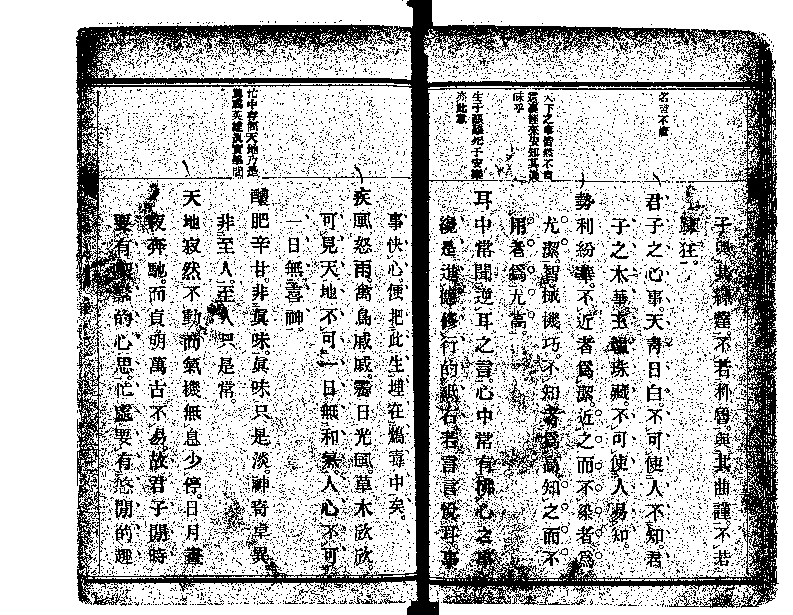 子與其練達不若朴魯與其曲謹不若
疎狂
君子之心事天青日白不可使人不知君
子之才華玉韞珠藏不可使人易知
勢利紛華不近者爲潔近之而不染者爲
尤潔智械機巧不知者爲高知之而不
用者爲尤高
耳中常聞逆耳之言心中常有拂心之事
纔是進德修行的砥石若言言悅耳事
事快心便把此生埋在鴆毒中矣
疾風怒雨禽鳥戚戚霽日光風草木欣欣
可見天地不可一日無和氣人心不可
一日無喜神
醲肥辛甘非眞味眞味只是淡神奇卓異
非至人至人只是常
天地寂然不動而氣機無息少停日月晝
夜奔馳而貞明萬古不易故君子閒時
要有喫緊的心思忙處要有悠閒的趣
生于憂患死于安樂